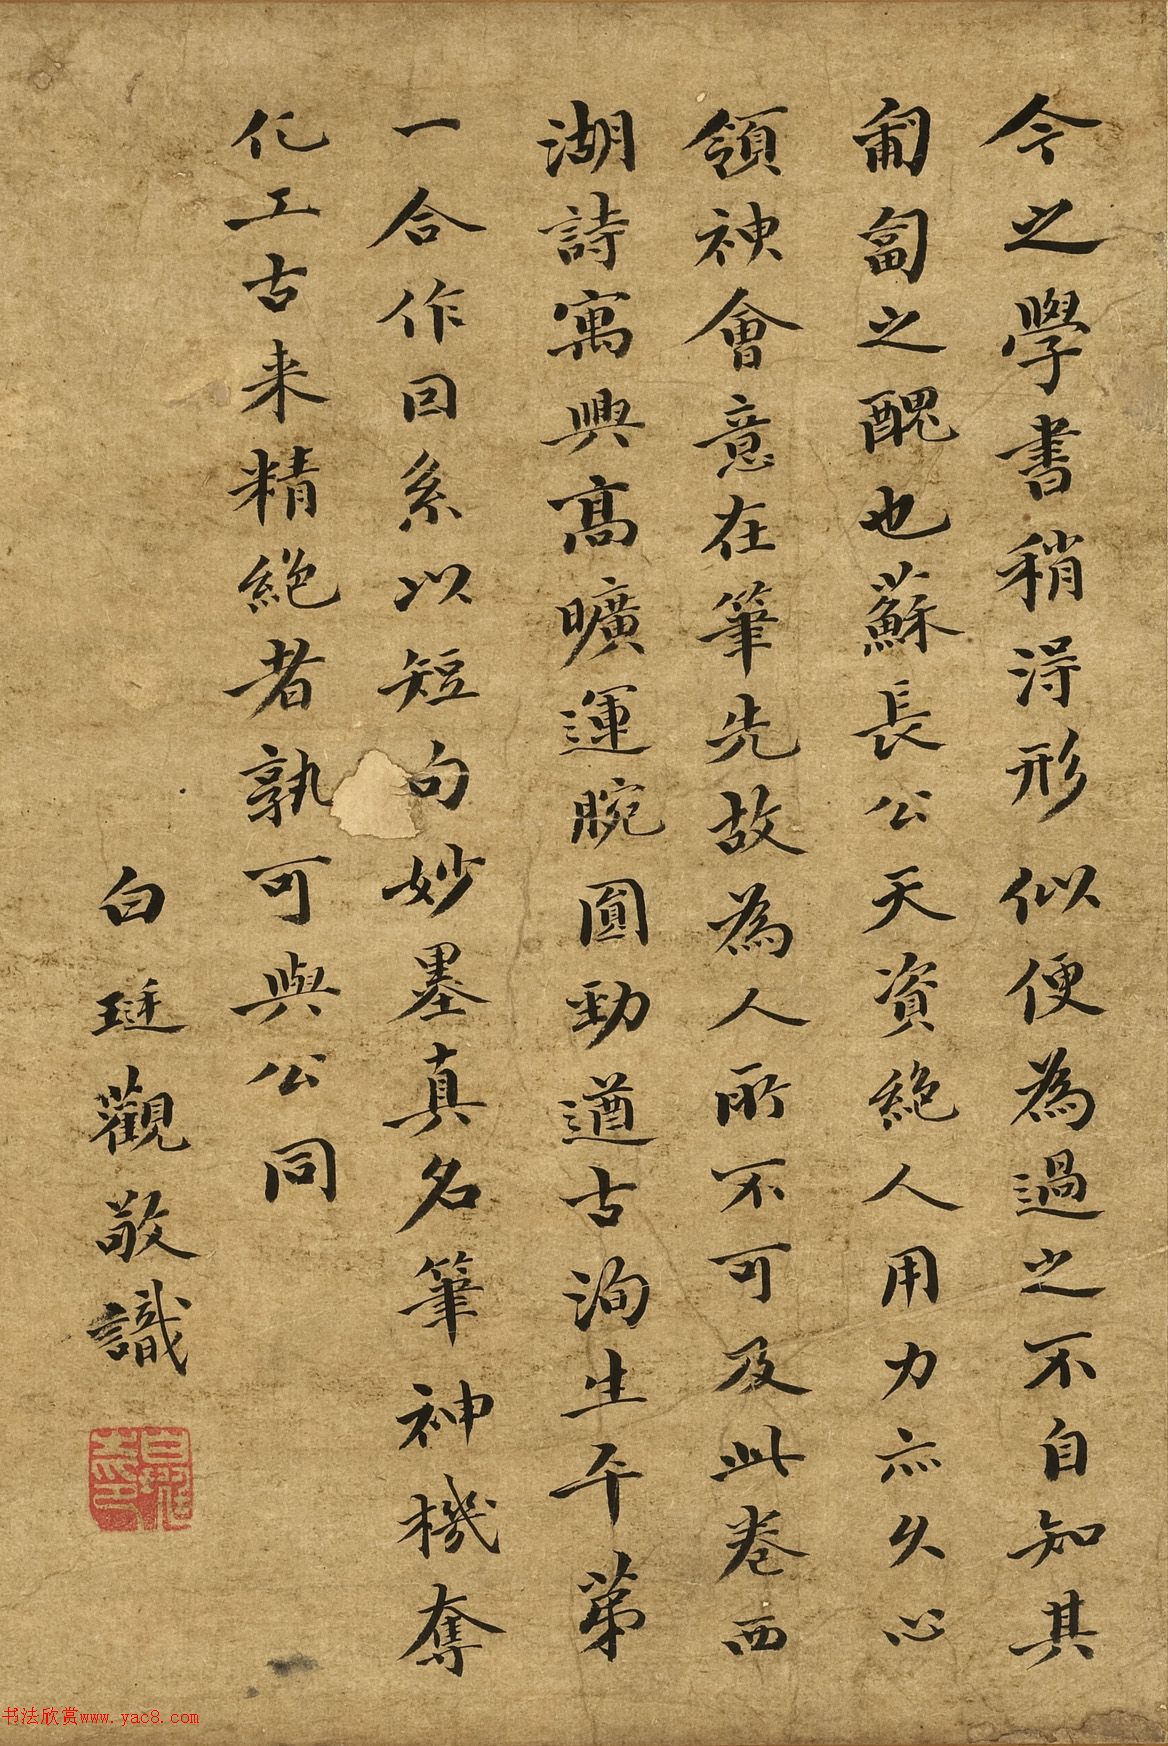 今之學書稍得形似便為過之不自知其
匍匐之醜也蘇長公天資絕人用力亦久心
領神會意在筆先故為人所不可及此卷西
湖詩寓興高曠運腕圓勁遒古洵生平第
一合作回系以短句妙墨真名筆神機奪
化工古来精絕者孰可與公同
白珽觀敬識
书法欣赏www.yac8.com